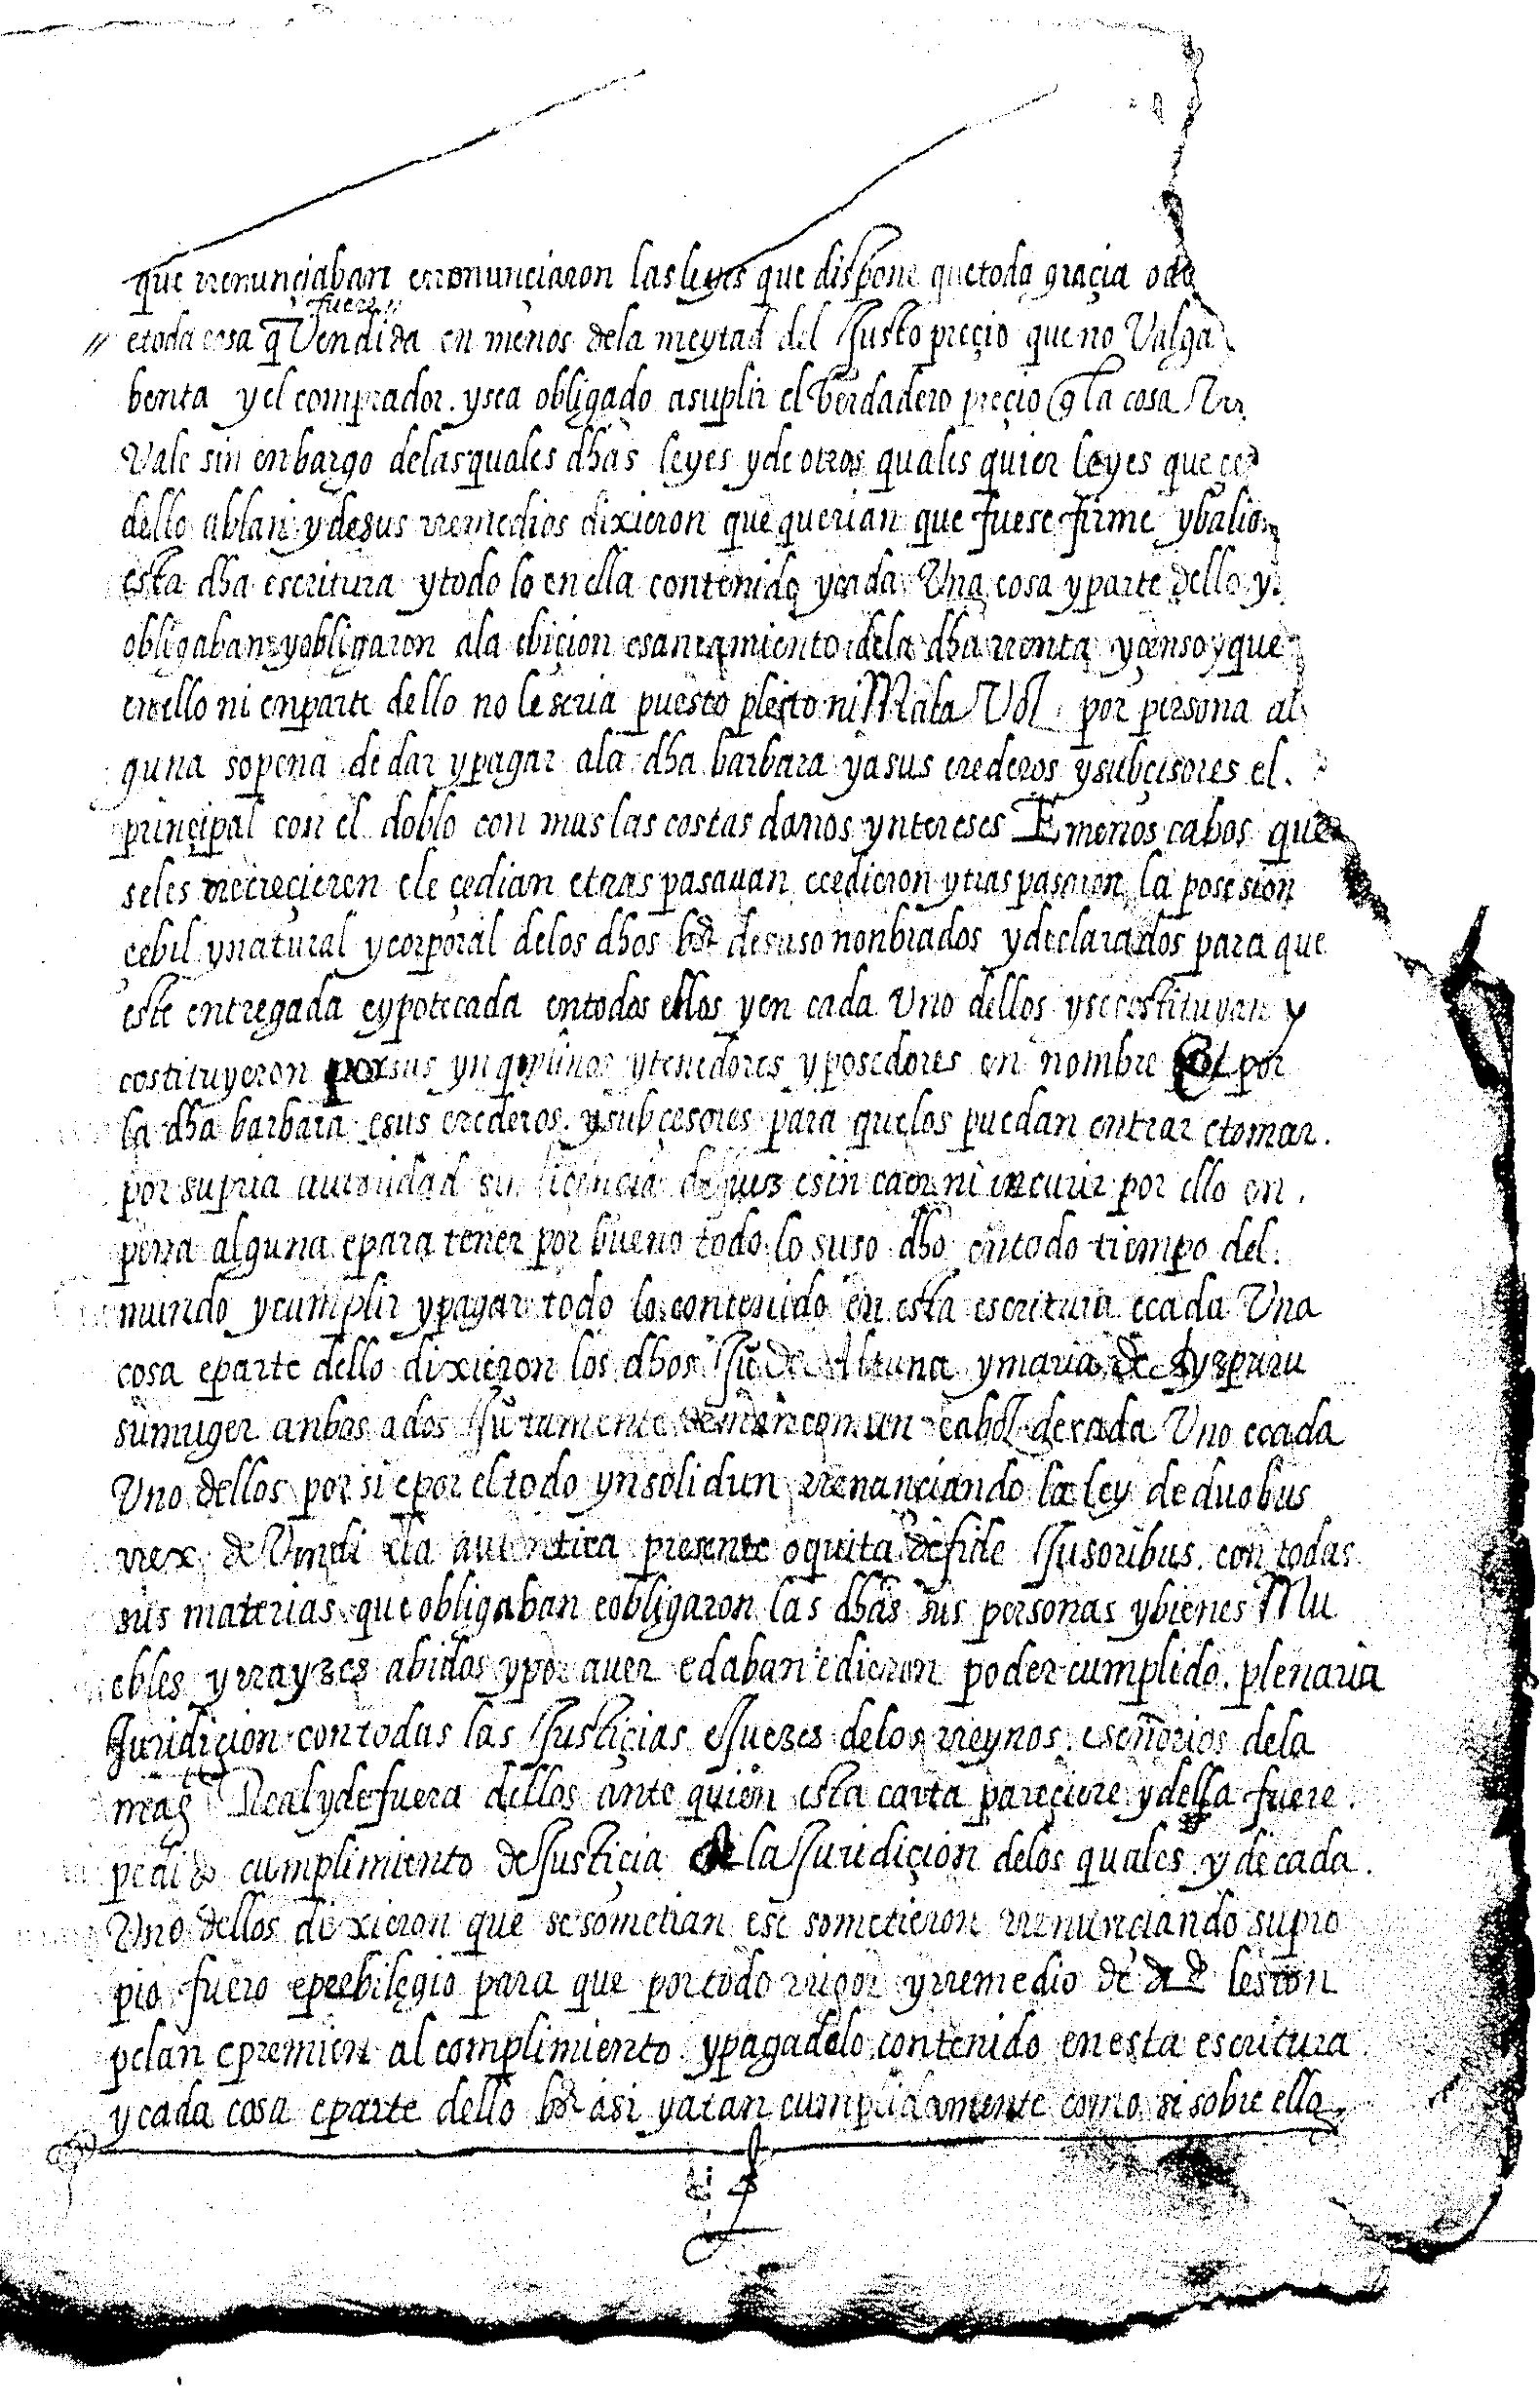 que rrenunçiaban e rrenunçiaron las leyes que dispone que toda graçia o do
fuere
// e toda cosa q Vendida en menos de la meytad del Justo preçio que no Valga
benta y el comprador. y sea obligado a suplir el berdadero preçio q la cosa
Vale sin enbargo de las quales dhas leyes y de otros quales quier leyes que çe
dello ablan y de sus rremedios dixieron que querian que fuese firme y balio
esta dha escritura y todo lo en ella contenido y cada Una cosa y parte dello y
obligaban y obligaron a la ebiçion e saneamiento de la dha rrenta y çenso y que
en ello ni en parte dello no le seria puesto pleito ni Mala Vol por persona al
guna so pena de dar y pagar a la dha barbara y a sus erederos y subçesores el.
prinçipal con el doblo con mas las costas danos yntereses E menos cabos que
se les rrecreçieren e le çedian e tras pasauan e cedieron y tras pasaron la posesion
çebil y natural y corporal de los dhos de suso nonbrados y declarados para que
este entregada e ypotecada en todos ellos y en cada Uno dellos y se costituyan y
costituyeron por sus ynquylinos y tenedores y posedores en nombre por
la dha barbara e sus erederos. y subçesores para que los puedan entrar e tomar.
por su pria autoridad sin liçençia de juez e sin caer ni incurir por ello en.
pena alguna e para tener por bueno todo lo suso dho en todo tiempo del.
mundo y cumplir y pagar todo lo contenido en esta escritura e cada Una
cosa e parte dello dixieron los dhos Ju de Altuna y maria de
su muger anbos a dos Juntamente de mancomun e a boz de cada Uno e cada
Uno dellos por si e por el todo ynsolidun rrenunçiando la ley de duobus
rrex de Vendi e la autentica presente oquita de fide Jusoribus. con todas
sus materias que obligaban e obligaron las dhas sus personas y bienes Mu
ebles y rrayzes abidos y por auer e daban e dieron poder cumplido. plenaria
Juridiçion con todas las Justiçias e Juezes de los rreynos e señorios de la
mag Real y de fuera dellos ante quien esta carta pareçiere y della fuere.
pedido cumplimiento de Justiçia la Juridiçion de los quales y de cada.
Uno dellos dixieron que se sometian e se sometieron rrenunciando su pro
pio fuero e prebilegio para que por todo rrigor y rremedio de les con
pelan e premien al complimiento y paga de lo contenido en esta escritura
y cada cosa e parte dello asi y a tan cumplidamente como si sobre ello